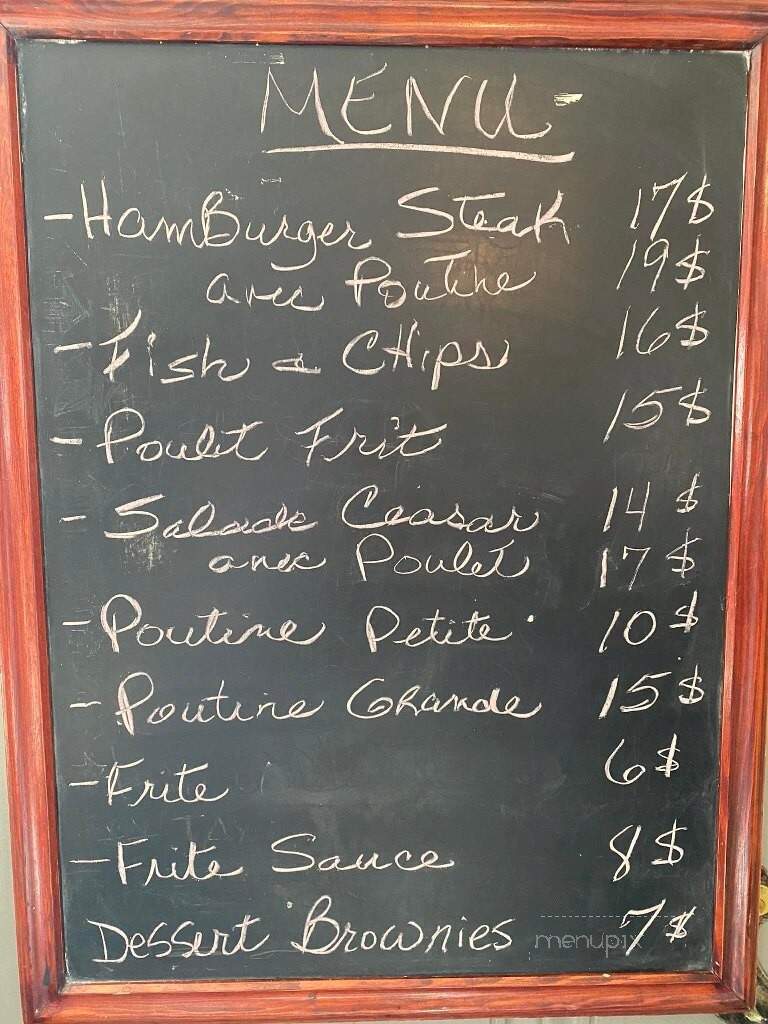 MENU
- HamBurger Steak 17$
avec Poutine 19$
- Fish & CHips 16$
- Poulet Frit 15$
- Salade Ceasar 14 $
avec Poulet 17 $
- Poutine Petite 10 $
- Poutine GRande 15 $
- Frite 6 $
- Frite Sauce 8 $
Dessert Brownies 7 $
menupix